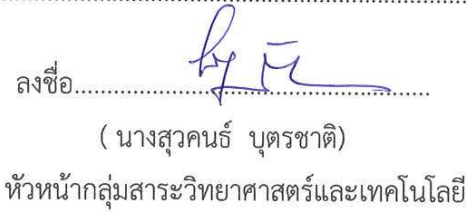 ลงชื่อ
( นางสุวคนธ์ บุตรชาติ)
หัวหน้ากลุ่มสาระวิทยาศาสตร์และเทคโนโลยี